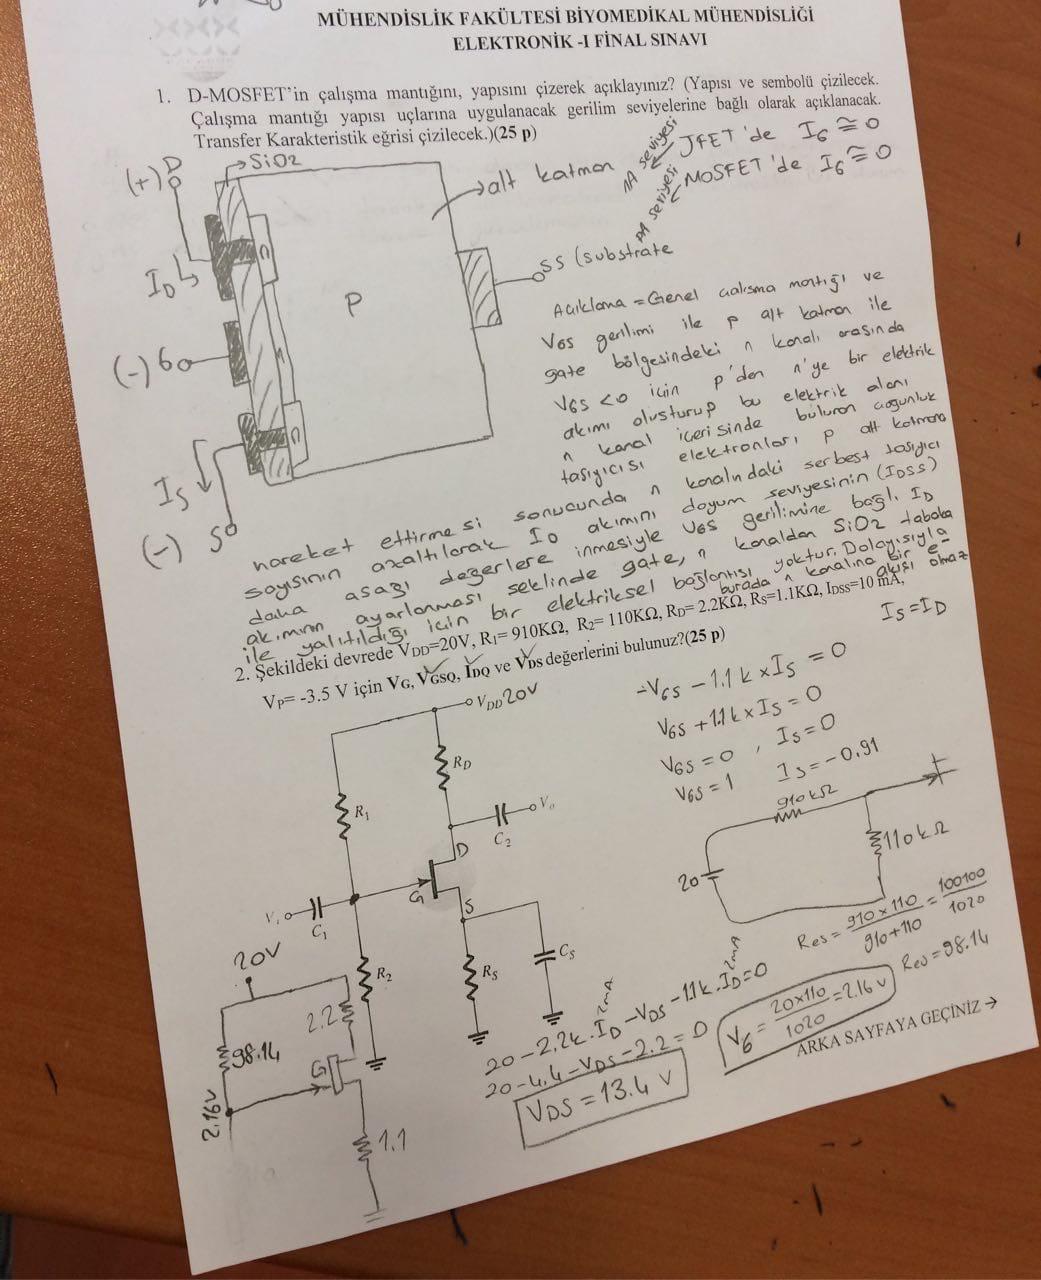 MÜHENDİSLİK FAKÜLTESİ BİYOMEDİKAL MÜHENDİSLİĞİ
ELEKTRONİK -I FİNAL SINAVI
1. D-MOSFET'in çalışma mantığını, yapısını çizerek açıklayınız? (Yapısı ve sembolü çizilecek.
Çalışma mantığı yapısı uçlarına uygulanacak gerilim seviyelerine bağlı olarak açıklanacak.
Transfer Karakteristik eğrisi çizilecek.)(25 p)
nA seviyesi
JFET'de IG ≅ 0
pA seviyesi
MOSFET'de IG ≅ 0
(+) D
SiO2
alt katman
ID
P
n
SS (substrate
(-) G
n
IS
n
(-) S
Açıklama = Genel çalışma mantığı ve
VGS gerilimi ile p alt katman ile
gate bölgesindeki n kanalı arasında
VGS <0 için p'den n'ye bir elektrik
akımı oluşturup bu elektrik alanı
n kanal içerisinde bulunan çoğunluk
taşıyıcısı elektronları p alt katmana
hareket ettirmesi sonucunda n kanalındaki serbest taşıyıcı
sayısının azaltılarak ID akımını doyum seviyesinin (IDSS)
daha aşağı değerlere inmesiyle VGS gerilimine bağlı ID
akımının ayarlanması şeklinde gate, n kanaldan SiO2 tabaka
ile yalıtıldığı için bir elektriksel bağlantısı yoktur. Dolayısıyla
burada n kanalına bir e-
akışı olmaz
2. Şekildeki devrede VDD=20V, R1= 910KΩ, R2= 110KΩ, RD= 2.2KΩ, RS=1.1KΩ, IDSS=10 mA,
VP= -3.5 V için VG, VGSQ, IDQ ve VDS değerlerini bulunuz?(25 p)
IS=ID
-VGS - 1.1k x IS = 0
VGS + 1.1k x IS = 0
VGS = 0 , IS = 0
VGS = 1 IS = -0.91
VDD 20V
RD
R1
Vo
C2
D
G
S
Vi
C1
R2
RS
CS
910kΩ
20
110kΩ
Res = 910×110 / 910+110 = 100100 / 1020
Res = 98.14
20V
2.2
98.14
G
2.16V
1.1
2mA
2mA
20 - 2.2k . ID - VDS - 1.1k . ID = 0
20 - 4.4 - VDS - 2.2 = 0
VDS = 13.4 V
VG = 20×110 / 1020 = 2.16 V
ARKA SAYFAYA GEÇİNİZ →